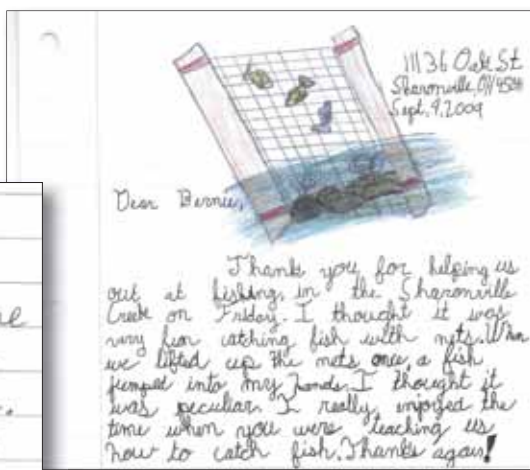 11136 Oak St
Sharonville, OH
Sept. 9, 2009
Dear Bernie,
Thank you for helping us
out at fishing in the Sharonville
Creek on Friday. I thought it was
very fun catching fish with nets. When
we lifted up the nets once, a fish
jumped into my hands. I thought it
was peculiar. I really enjoyed the
time when you were teaching us
how to catch fish. Thanks again!